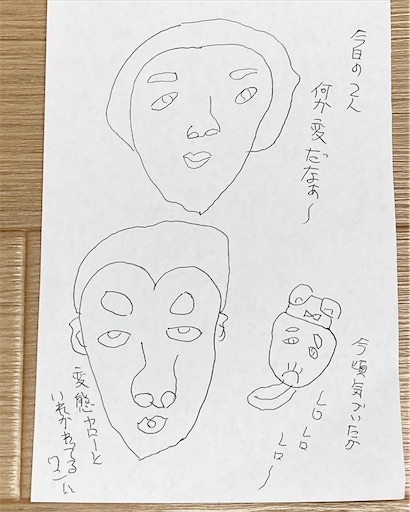 今日の2人
何か変だなぁ〜
今頃気づいたか
レロレロレロ〜
変態ヤローと
いれかわってる
ワニ